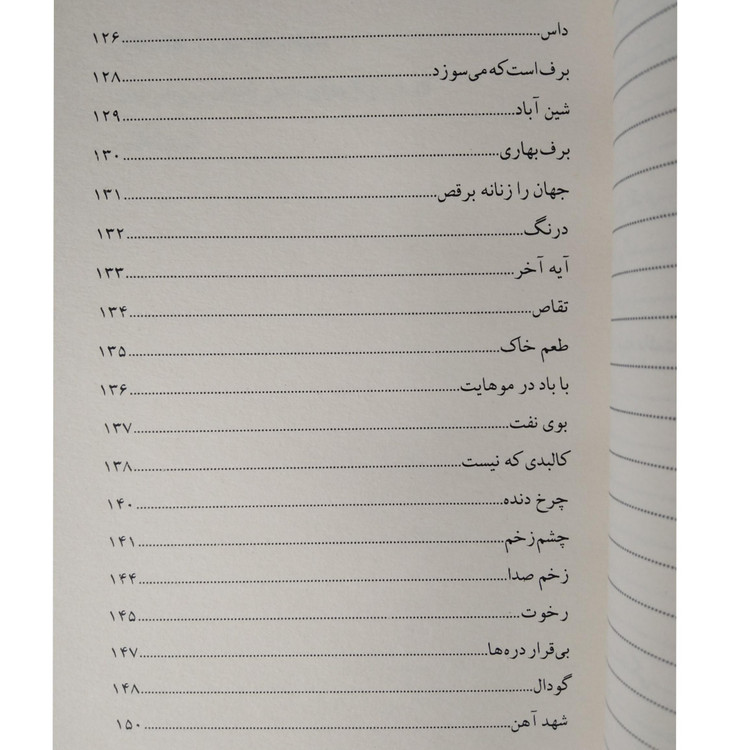 داس..........۱۲۶
برف است که می‌سوزد..........۱۲۸
شین آباد..........۱۲۹
برف بهاری..........۱۳۰
جهان را زنانه برقص..........۱۳۱
درنگ..........۱۳۲
آیه آخر..........۱۳۳
تقاص..........۱۳۴
طعم خاک..........۱۳۵
با باد در موهایت..........۱۳۶
بوی نفت..........۱۳۷
کالبدی که نیست..........۱۳۸
چرخ دنده..........۱۴۰
چشم زخم..........۱۴۱
زخم صدا..........۱۴۴
رخوت..........۱۴۵
بی‌قرار دره‌ها..........۱۴۷
گودال..........۱۴۸
شهد آهن..........۱۵۰